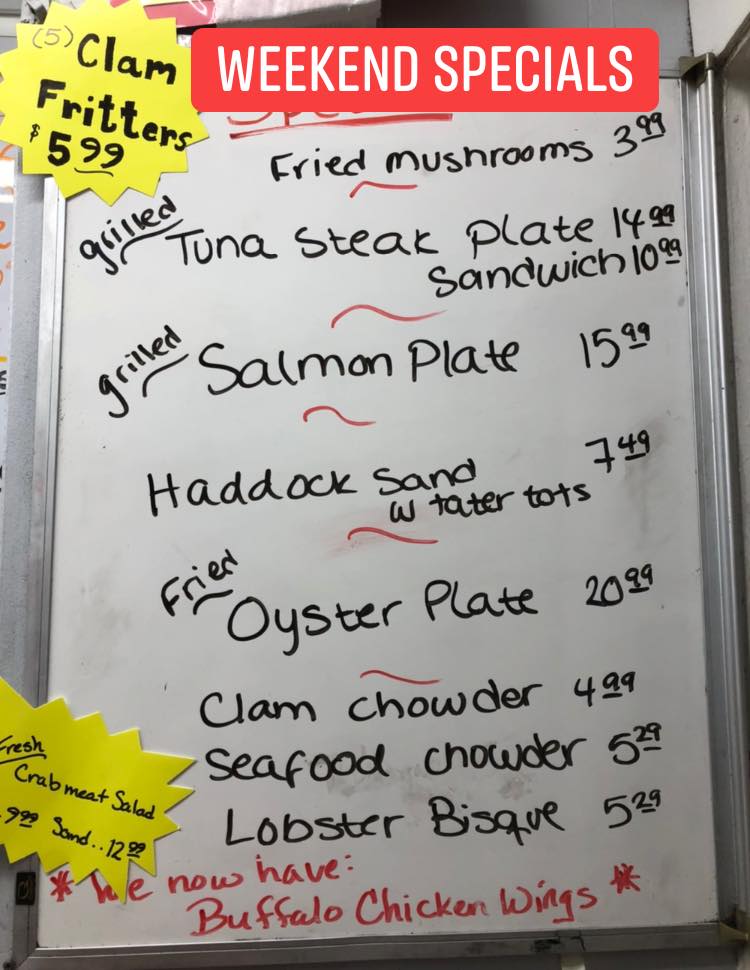 (5) Clam
Fritters
$5.99
WEEKEND SPECIALS
Fried mushrooms 3.99
grilled Tuna Steak Plate 14.99
Sandwich 10.99
grilled Salmon Plate 15.99
Haddock Sand 7.49
w tater tots
Fried Oyster Plate 20.99
Clam chowder 4.99
Seafood chowder 5.29
Lobster Bisque 5.29
Fresh
Crabmeat Salad
9.99 Sand..12.99
* We now have:
Buffalo Chicken Wings *